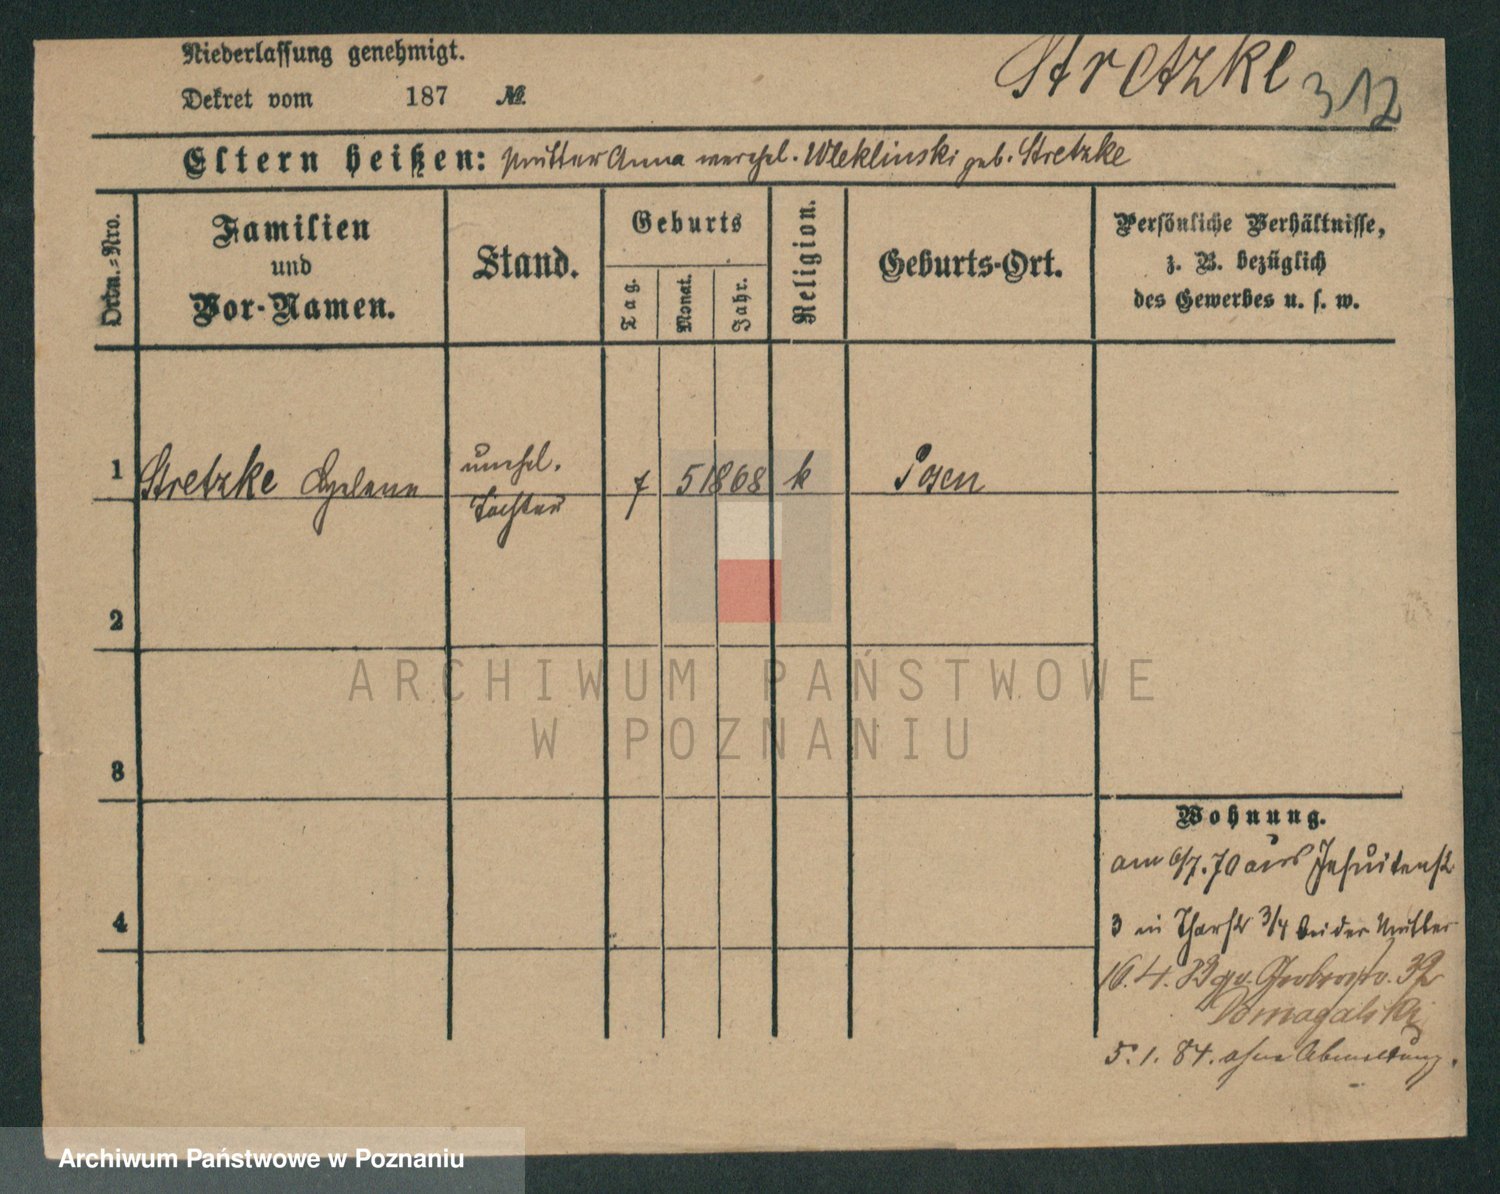 Niederlassung genehmigt.
Dekret vom 187 №.
Stretzke 312
Eltern heißen: Mutter Anna verehel. Wleklinski geb. Stretzke
Ordn.-Nro.
Familien
und
Vor-Namen.
Stand.
Geburts
Tag.
Monat.
Jahr.
Religion.
Geburts-Ort.
Persönliche Verhältnisse,
z. B. bezüglich
des Gewerbes u. s. w.
1 Stretzke Helene unehel. 7 5 1868 k Posen
Tochter
2
3
4
ARCHIWUM PAŃSTWOWE
W POZNANIU
Wohnung.
am 6/7. 70 aus Jesuitenstr
3 in Thorstr 3/4 bei der Mutter
16. 4. 32
Domagalski
5. 1. 84. ohne Abmeldung.
Archiwum Państwowe w Poznaniu